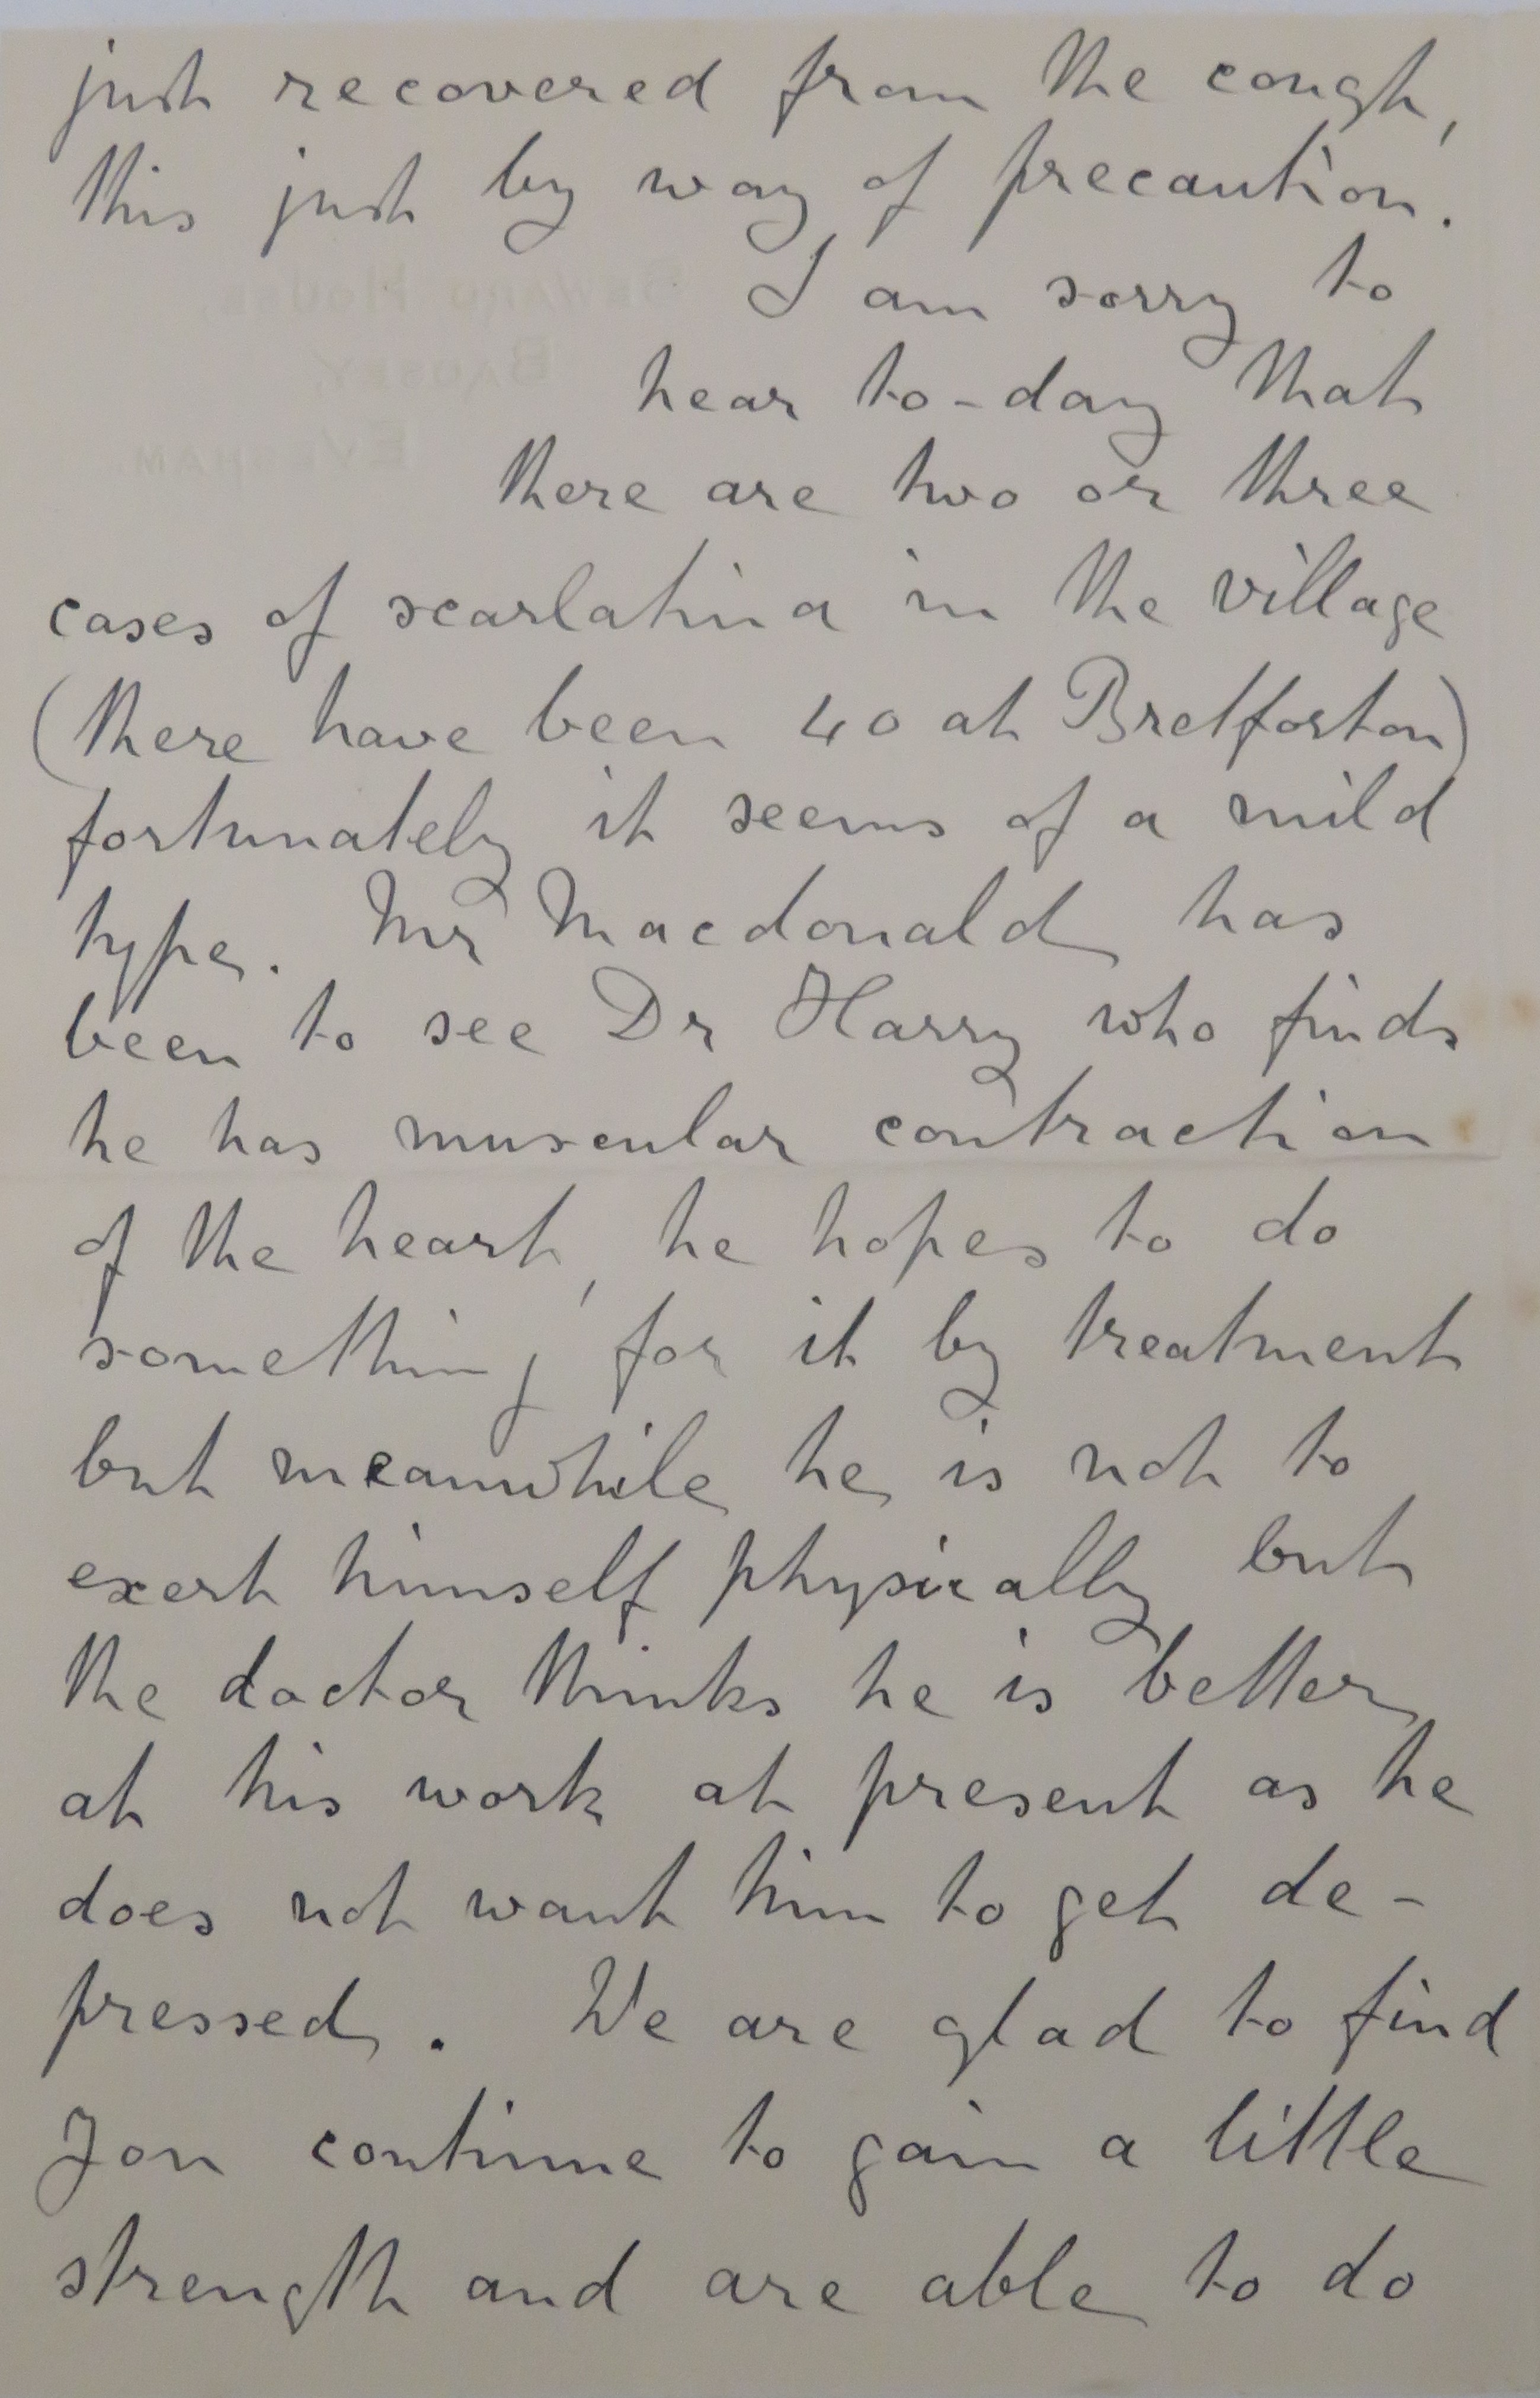 just recovered from the cough,
this just by way of precaution.
I am sorry to
hear to-day that
there are two or three
cases of scarlatina in the village
(there have been 40 at Bretforton)
fortunately it seems of a mild
type. Mr Macdonald has
been to see Dr Harry who finds
he has muscular contraction
of the heart, he hopes to do
something for it by treatment
but meanwhile he is not to
exert himself physically but
the doctor thinks he is better
at his work at present as he
does not want him to get de-
pressed. We are glad to find
you continue to gain a little
strength and are able to do